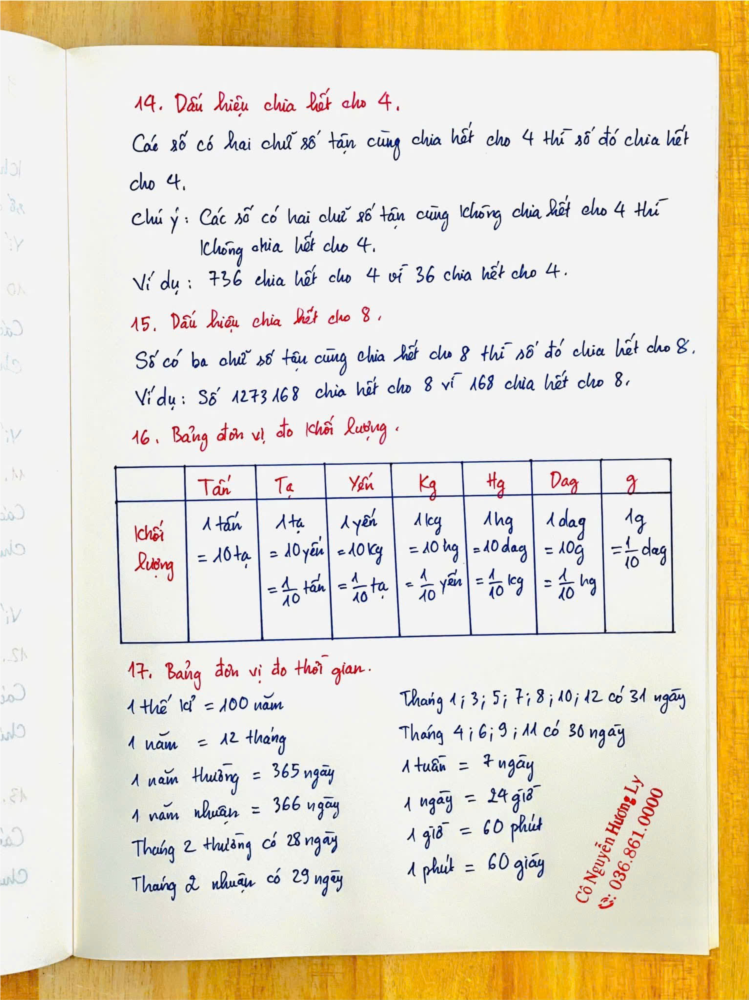 14. Dấu hiệu chia hết cho 4.
Các số có hai chữ số tận cùng chia hết cho 4 thì số đó chia hết
cho 4.
Chú ý: Các số có hai chữ số tận cùng không chia hết cho 4 thì
không chia hết cho 4.
Ví dụ: 736 chia hết cho 4 vì 36 chia hết cho 4.
15. Dấu hiệu chia hết cho 8.
Số có ba chữ số tận cùng chia hết cho 8 thì số đó chia hết cho 8.
Ví dụ: Số 1273168 chia hết cho 8 vì 168 chia hết cho 8.
16. Bảng đơn vị đo khối lượng.
Tấn Tạ Yến Kg Hg Dag g
Khối lượng
1 tấn 1 tạ 1 yến 1kg 1hg 1dag 1g
= 10 tạ = 10 yến = 10kg = 10 hg = 10 dag = 10g = 1/10 dag
= 1/10 tấn = 1/10 tạ = 1/10 yến = 1/10 kg = 1/10 hg
17. Bảng đơn vị đo thời gian.
1 thế kỉ = 100 năm
1 năm = 12 tháng
1 năm thường = 365 ngày
1 năm nhuận = 366 ngày
Tháng 2 thường có 28 ngày
Tháng 2 nhuận có 29 ngày
Tháng 1; 3; 5; 7; 8; 10; 12 có 31 ngày
Tháng 4; 6; 9; 11 có 30 ngày
1 tuần = 7 ngày
1 ngày = 24 giờ
1 giờ = 60 phút
1 phút = 60 giây
Cô Nguyễn Hương Ly
036.861.0000